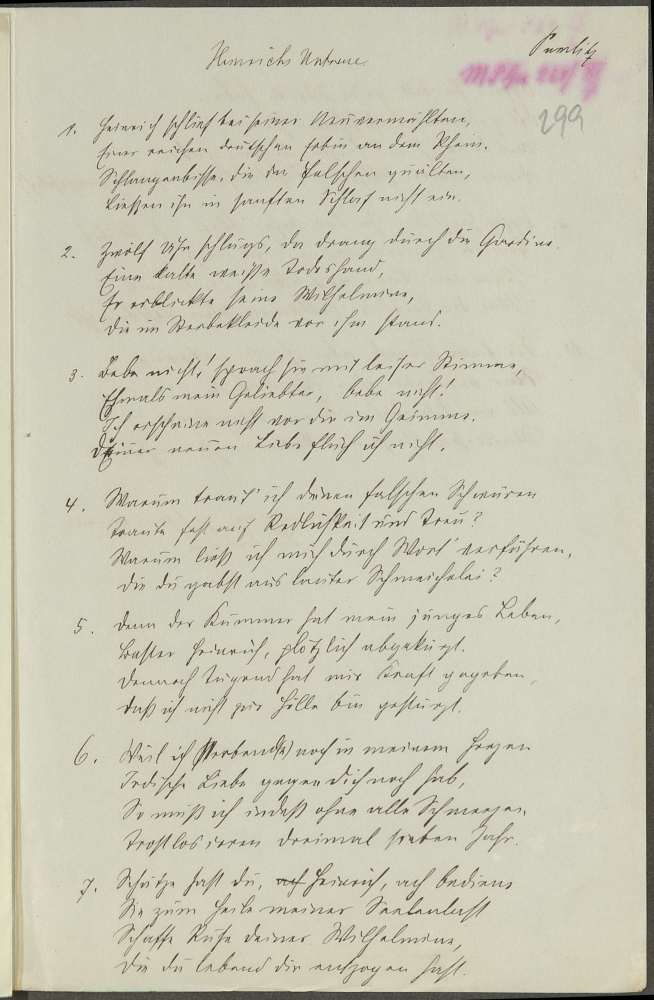 Heinrichs Untreue.
Pumlitz
299
1. Heinrich schlief bei seiner Neuvermählten,
Einer reichen deutschen Erbin an dem Rhein.
Schlangenbisse, die den Falschen quälten,
Ließen ihn in sanften Schlaf nicht ein.
2. Zwölf Uhr schlugs, da drang durch die Gardine
Eine kalte weiße Todeshand,
Er erblickte seine Wilhelmine,
Die im Sterbekleide vor ihm stand.
3. Bebe nicht! sprach sie mit leiser Stimme,
Ehmals mein Geliebter, bebe nicht!
Ich erscheine nicht vor dir im Grimme,
Deiner neuen Liebe fluch ich nicht.
4. Warum traut' ich deinen falschen Schwüren
Traute fest auf Redlichkeit und Treu?
Warum ließ ich mich durch Wort' verführen,
Die du gabst aus lauter Schmeichelei?
5. Denn der Kummer hat mein junges Leben,
Bester Heinrich, plötzlich abgekürzt.
Dennoch Tugend hat mir Kraft gegeben,
Daß ich nicht zur Hölle bin gestürzt.
6. Weil ich sterbend noch in meinem Herzen
Irdische Liebe gegen dich noch hab,
So muß ich indeß ohne alle Schmerzen
Trostlos irren dreimal sieben Jahr.
7. Schätze hast du, ach Heinrich, ach bediene
Sie zum Heile meiner Seelenlast
Schaffe Ruhe deiner Wilhelmine,
Die du lebend dir entzogen hast.